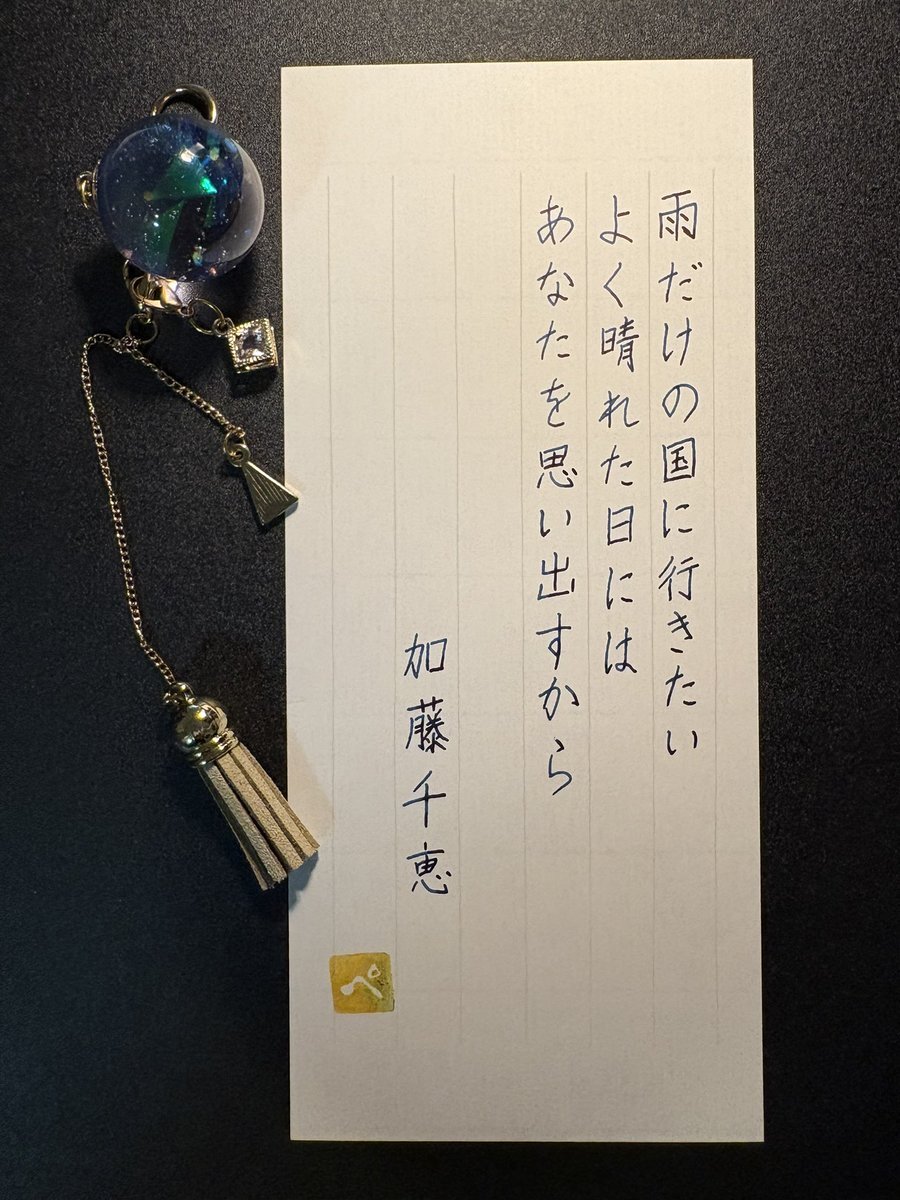 雨だけの国に行きたい
よく晴れた日には
あなたを思い出すから
加藤千恵
ペ